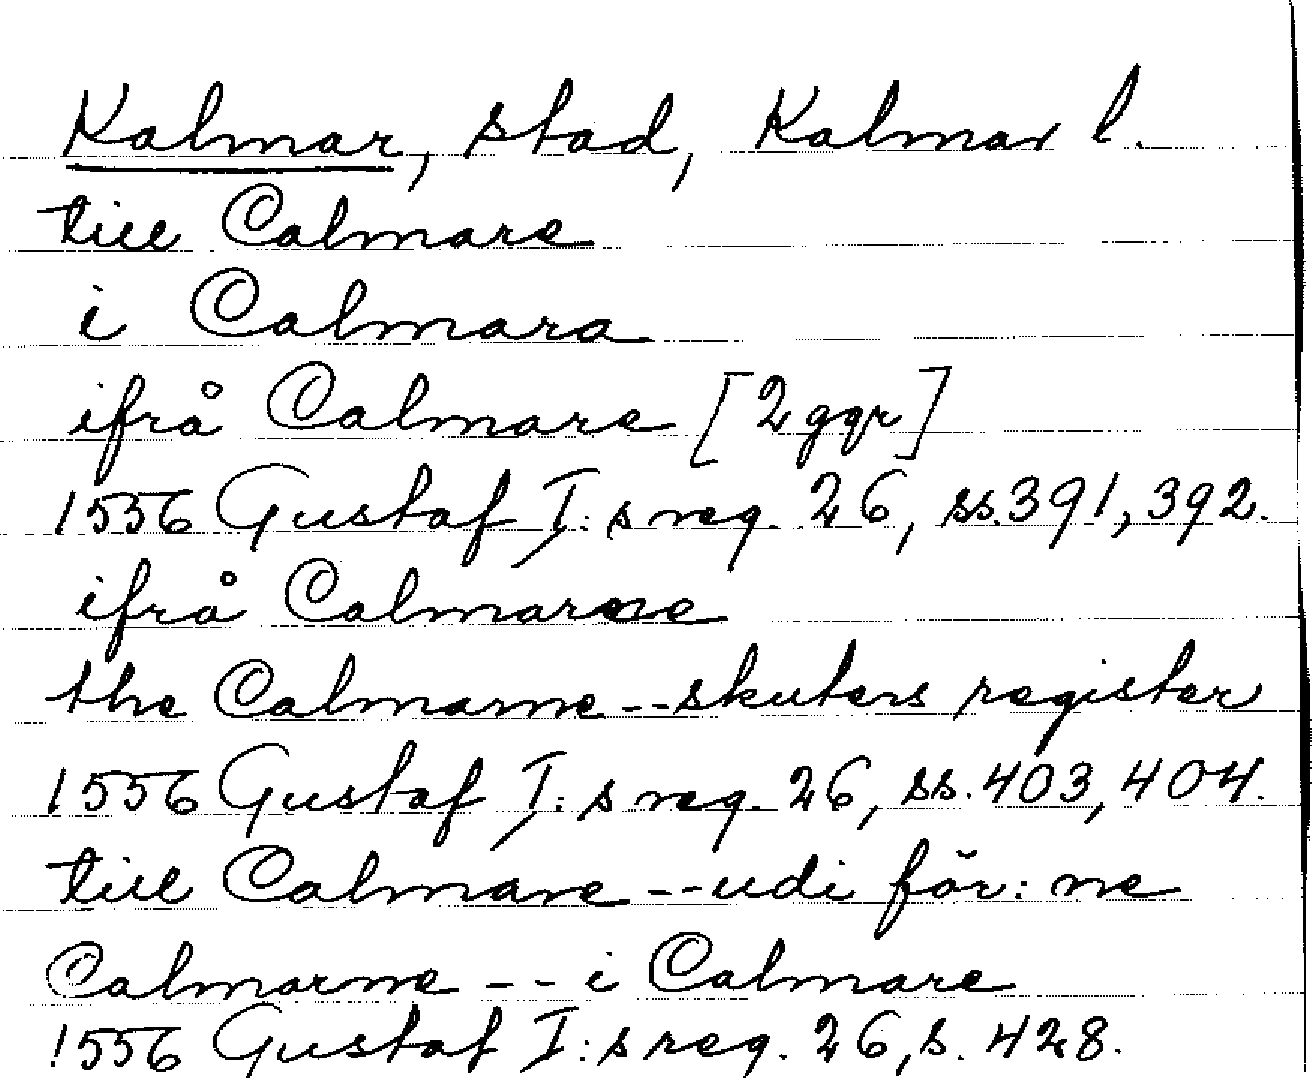 Kalmar, stad, Kalmar l.
till Calmare
i Calmara
ifrå Calmare [2 ggr]
1556 Gustaf I:s reg. 26, ss. 391, 392.
ifrå Calmarne
the Calmarne -- skuters register
1556 Gustaf I:s reg. 26, ss. 403, 404.
till Calmare -- udi för:ne
Calmarne -- i Calmare
1556 Gustaf I:s reg. 26, s. 428.